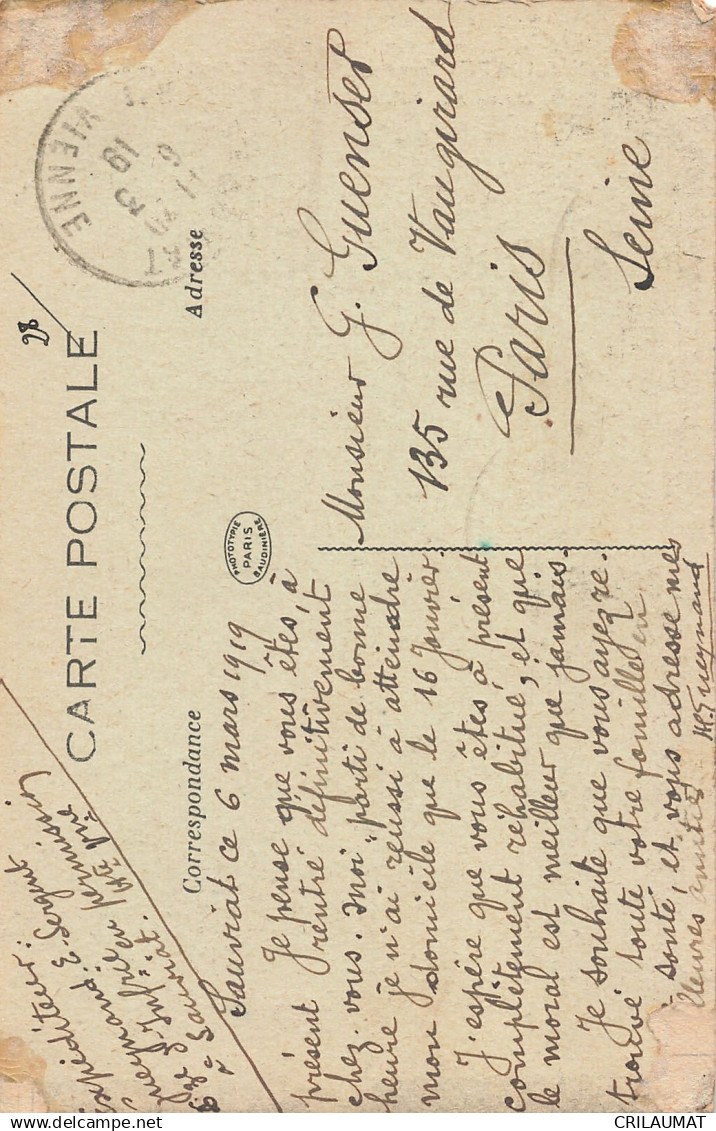 CARTE POSTALE
28
Correspondance
Adresse
PHOTOTYPIE
PARIS
BAUDINIÈRE
VIENNE
19
Expéditeur:
E. Sergent
en permission
Hte Vne
à Sauviat
Sauviat ce 6 mars 1919
Je pense que vous êtes, à
présent rentré définitivement
chez vous. Moi, parti de bonne
heure je n'ai réussi à atteindre
mon domicile que le 16 Janvier.
J'espère que vous êtes à présent
complètement réhabitué, et que
le moral est meilleur que jamais.
Je souhaite que vous ayez re
trouvé toute votre famille en
santé, et vous adresse mes
lleures amitiés
Monsieur G. Guenset
135 rue de Vaugirard
Paris
Seine
CRILAUMAT